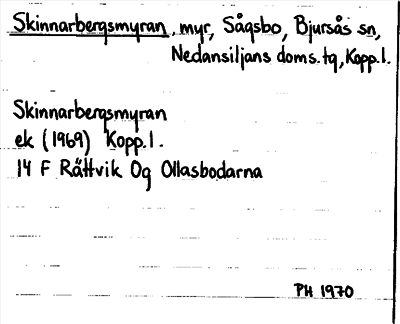 Skinnarbergsmyran, myr, Sågsbo, Bjursås sn,
Nedansiljans doms. tg, Kopp. l.
Skinnarbergsmyran
ek (1969) Kopp. l.
14 F Rättvik Og Ollasbodarna
PH 1970